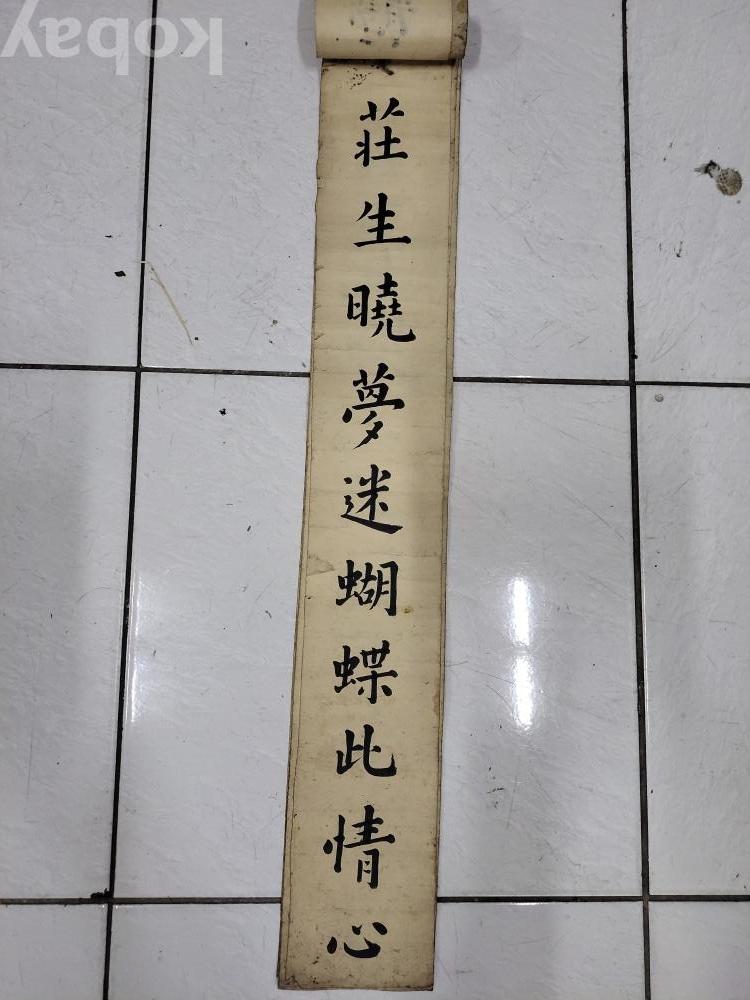 kobay
莊生曉夢迷蝴蝶此情心